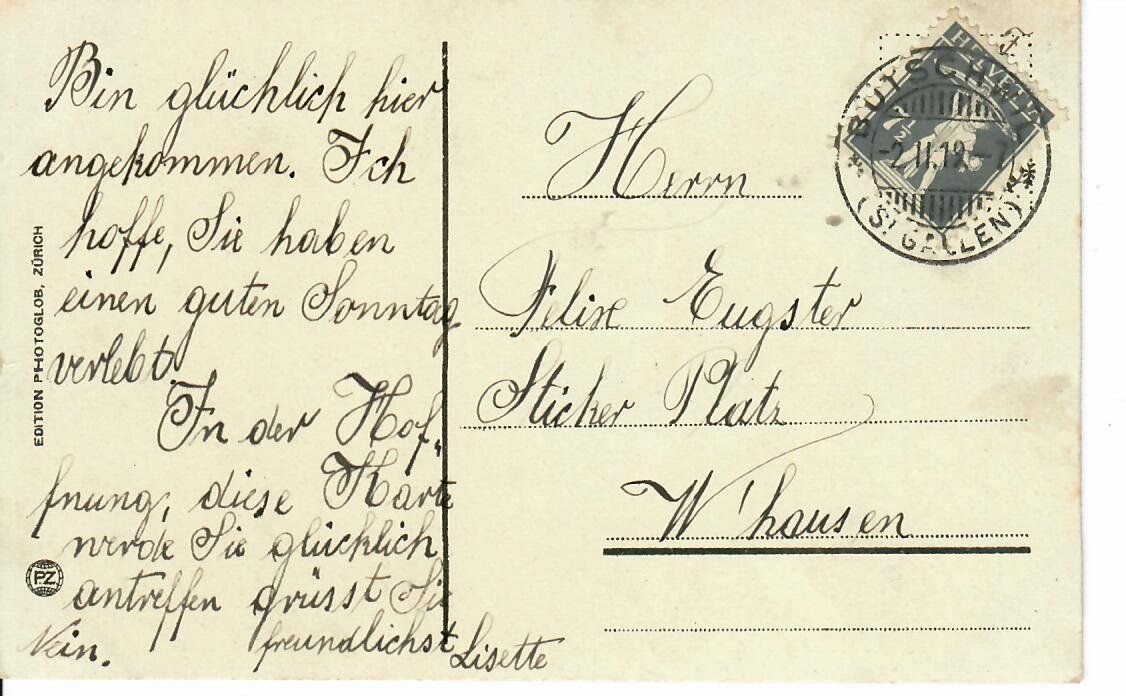 Bin glücklich hier
angekommen. Ich
hoffe, Sie haben
einen guten Sonntag
verlebt.
In der Hof-
fnung, diese Karte
werde Sie glücklich
antreffen grüsst Sie
freundlichst Lisette
Nein.
EDITION PHOTOGLOB, ZÜRICH
PZ
Herrn
Felix Eugster
Sticker Platz
W'hausen
HELVETIA
2½
BÜTSCHWIL
-2.II.19.-7
(ST GALLEN)